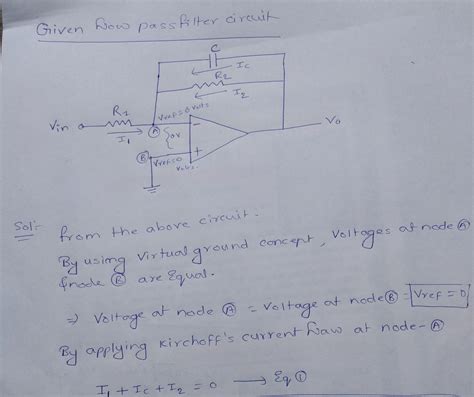 Given Low passfilter circuit
C
Ic
R2
I2
R1
Vref=0 volts
Vin
I1
A
0V
B
Vref=0
volts
-
+
Vo
Sol:- from the above circuit:-
By using virtual ground concept, Voltages at node A
&node B are Equal.
⇒ Voltage at node A = Voltage at node B = Vref = 0
By applying kirchoff's current Law at node-A
I1 + Ic + I2 = 0 → Eq 1